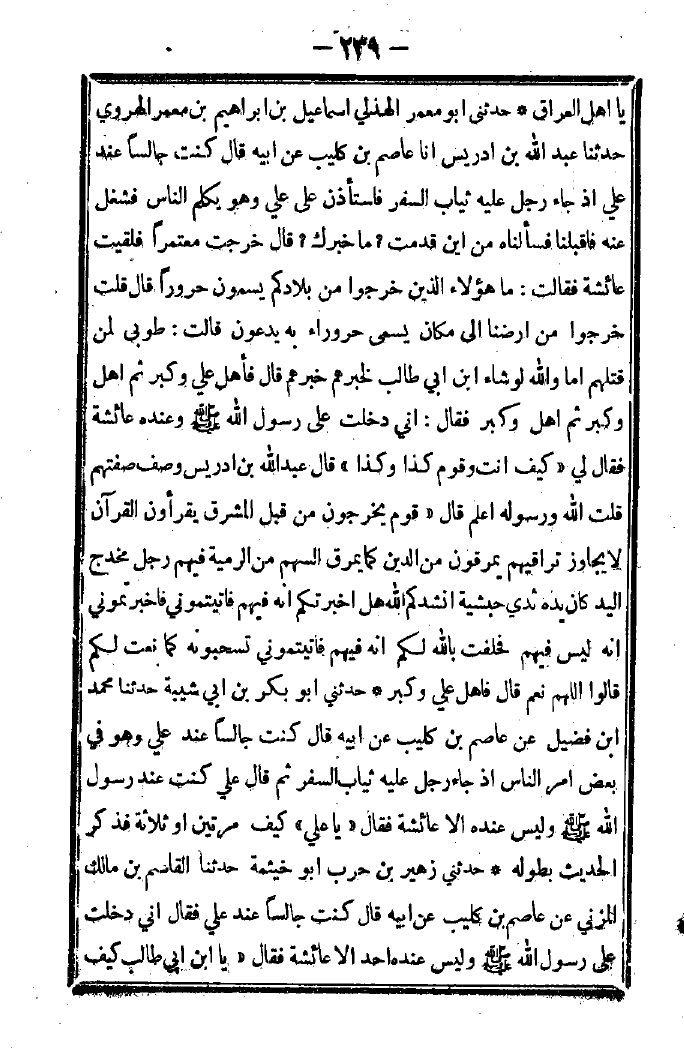 — ٢٣٩ —
يا اهل العراق * حدثني ابو معمر الهذلي اسماعيل بن ابراهيم بن معمر الهروي
حدثنا عبد الله بن ادريس انا عاصم بن كليب عن ابيه قال كنت جالساً عند
علي اذ جاء رجل عليه ثياب السفر فاستأذن على علي وهو يكلم الناس فشغل
عنه فاقبلنا فسألناه من اين قدمت ? ما خبرك ? قال خرجت معتمراً فلقيت
عائشة فقالت : ما هؤلاء الذين خرجوا من بلادكم يسمون حروراً قال قلت
خرجوا من ارضنا الى مكان يسمى حروراء به يدعون قالت : طوبي لمن
قتلهم اما والله لو شاء ابن ابي طالب لخبرهم خبرهم قال فأهل علي وكبر ثم اهل
وكبر ثم اهل وكبر فقال : اني دخلت على رسول الله ﷺ وعنده عائشة
فقال لي « كيف انت وقوم كذا وكذا » قال عبدالله بن ادريس وصف صفتهم
قلت الله ورسوله اعلم قال « قوم يخرجون من قبل المشرق يقرأون القرآن
لا يجاوز تراقيهم يمرقون من الدين كما يمرق السهم من الرمية فيهم رجل مخدج
اليد كان يده ثدي حبشية انشدكم الله هل اخبرتكم انه فيهم فاتيتموني فاخبرتموني
انه ليس فيهم فحلفت بالله لكم انه فيهم فاتيتموني تسحبونه كما نعت لكم
قالوا اللهم نعم قال فاهل علي وكبر * حدثني ابو بكر بن ابي شيبة حدثنا محمد
ابن فضيل عن عاصم بن كليب عن ابيه قال كنت جالساً عند علي وهو في
بعض امر الناس اذ جاء رجل عليه ثياب السفر ثم قال علي كنت عند رسول
الله ﷺ وليس عنده الا عائشة فقال « يا علي » كيف مرتين او ثلاثة فذكر
الحديث بطوله * حدثني زهير بن حرب ابو خيثمة حدثنا القاسم بن مالك
المزني عن عاصم بن كليب عن ابيه قال كنت جالساً عند علي فقال اني دخلت
على رسول الله ﷺ وليس عنده احد الا عائشة فقال « يا ابن ابي طالب كيف